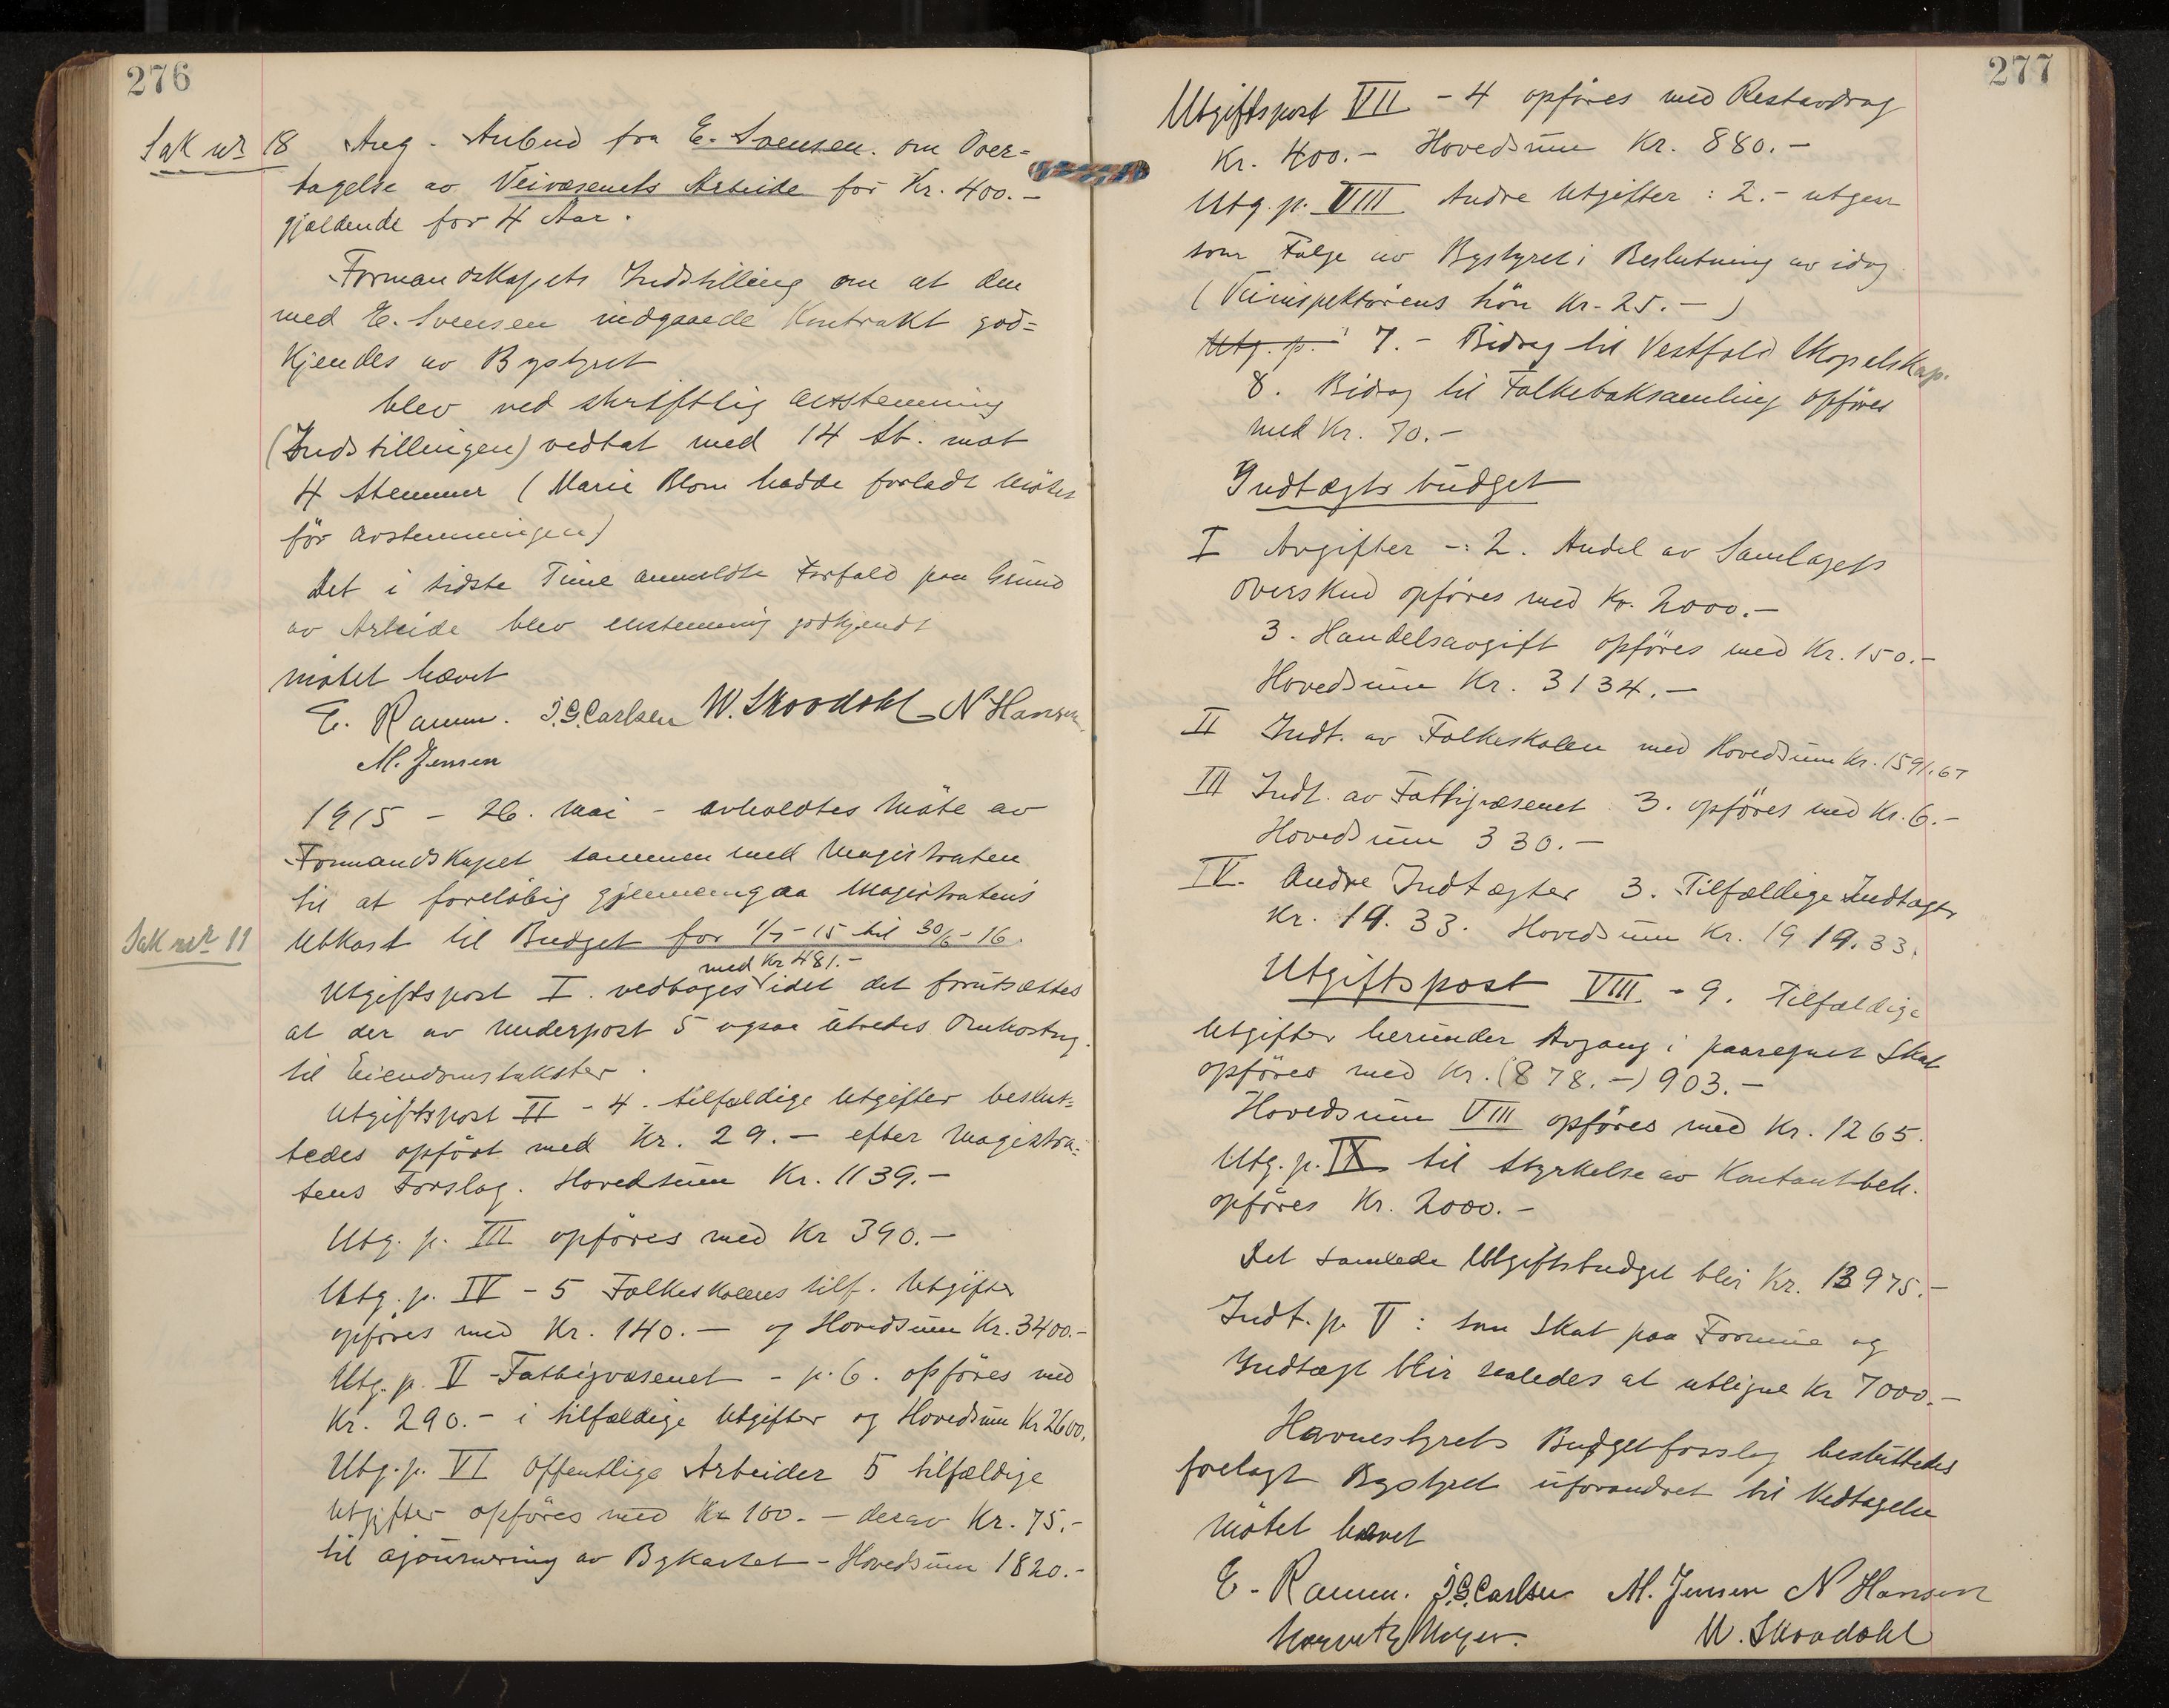 276
Sak nr 18 Ang. Anbud fra E. Svensen. om Over=
tagelse av Veivæsenets Arbeide for Kr. 400.-
gjældende for 4 Aar.
Formandskapets Indstilling om at den
med E. Svensen indgaaede Kontrakt god=
kjendes av Bystyret
blev ved skriftlig avstemning
(Indstillingen) vedtat med 14 St. mot
4 Stemmer (Marie Blom hadde forladt Mötet
för avstemningen)
Det i sidste Time anmeldte Forfald paa Grund
av Arbeide blev enstemmig godkjendt
Mötet hævet
E. Ramm. J.G. Carlsen W. Skovdahl N Hansen
M. Jensen
1915 - 26. Mai - avholdtes Möte av
Formandskapet sammen med Magistraten
til at forelöbig gjennemgaa Magistratens
Sak nr 11 Utkast til Budget for 1/7-15 til 30/6-16.
med Kr 481.-
Utgiftspost I. vedtages idet det forutsættes
at der av Underpost 5 ogsaa utredes Omkostng.
til Eiendomstakster.
Utgiftspost II - 4. tilfældige Utgifter beslut=
tedes opfört med Kr. 29.- efter Magistra=
tens Forslag. Hovedsum Kr. 1139.-
Utg. p. III opföres med Kr 390.-
Utg. p. IV - 5 Folkeskolens tilf. Utgifter
opföres med Kr. 140.- og Hovedsum Kr. 3400.-
Utg. p. V - Fattigvæsenet - p. 6. opföres med
Kr. 290.- i tilfældige Utgifter og Hovedsum Kr 2600.
Utg. p. VI Offentlige Arbeider 5 tilfældige
Utgifter opföres med Kr 100.- derav Kr. 75.-
til ajourföring av Bykartet - Hovedsum 1820.-
277
Utgiftspost VII - 4 opföres med Restavdrag
Kr. 400.- Hovedsum Kr. 880.-
Utg. p. VIII Andre Utgifter: 2.- utgaar
som Fölge av Bystyrets Beslutning av idag
(Veiinspektörens Lön Kr. 25.-)
Utg. p. 7.- Bidrag til Vestfold Skogselskap.
8. Bidrag til Folkeboksamling opföres
med Kr. 70.-
Indtægtsbudget
I Avgifter -: 2. Andel av Samlagets
Overskud opföres med Kr. 2000.-
3. Handelsavgift opföres med Kr. 150.-
Hovedsum Kr. 3134.-
II Indt. av Folkeskolen med Hovedsum Kr. 1591.67
III Indt. av Fattigvæsenet 3. opföres med Kr. 6.-
Hovedsum 330.-
IV. Andre Indtægter 3. Tilfældige Indtægter
Kr. 19.33. Hovedsum Kr. 1919.33.
Utgiftspost VIII. - 9. Tilfældige
Utgifter herunder Avgang i paaregnet Skat
opföres med Kr. (878.-) 903.-
Hovedsum VIII opföres med Kr. 1265.
Utg. p. IX til Styrkelse av Kontantbeh.
opföres Kr. 2000.-
Det samlede Utgiftsbudget blir Kr. 13975.-
Indt. p. V: som Skat paa Formue og
Indtægt blir saaledes at utligne Kr 7000.-
Havnestyrets Budgetforslag besluttedes
forelagt Bystyret uforandret til Vedtagelse
Mötet hævet
E. Ramm. J.G. Carlsen M. Jensen N Hansen
Meyer. W. Skovdahl